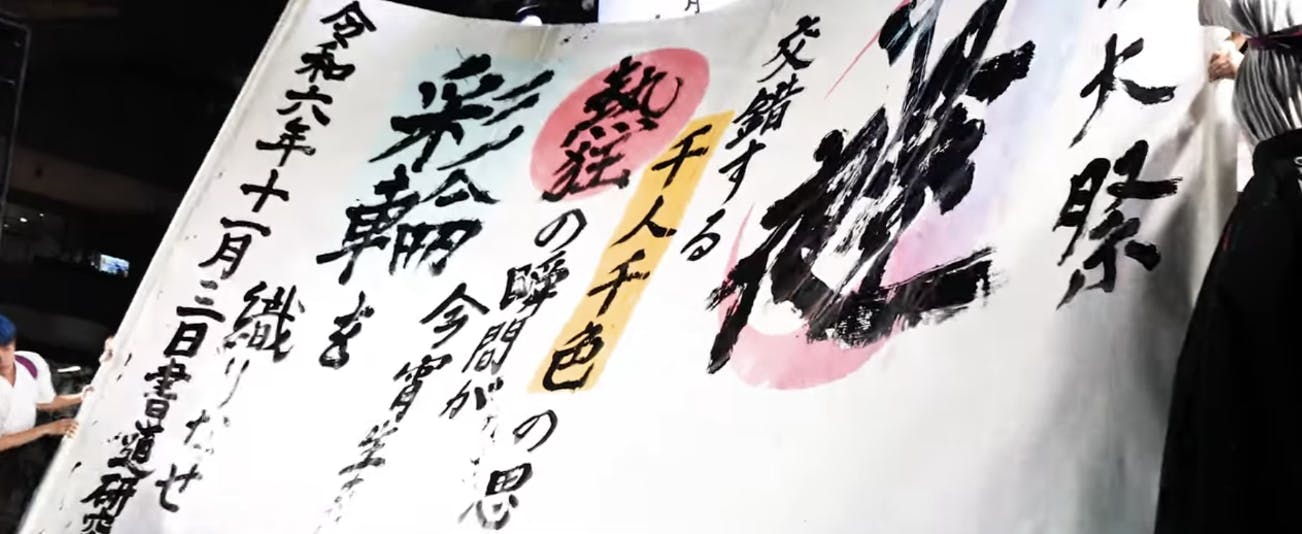 大祭
交錯する
千人千色の思
熱狂の瞬間が
今宵生ま
彩輪を
織りなせ
令和六年十一月三日書道研究